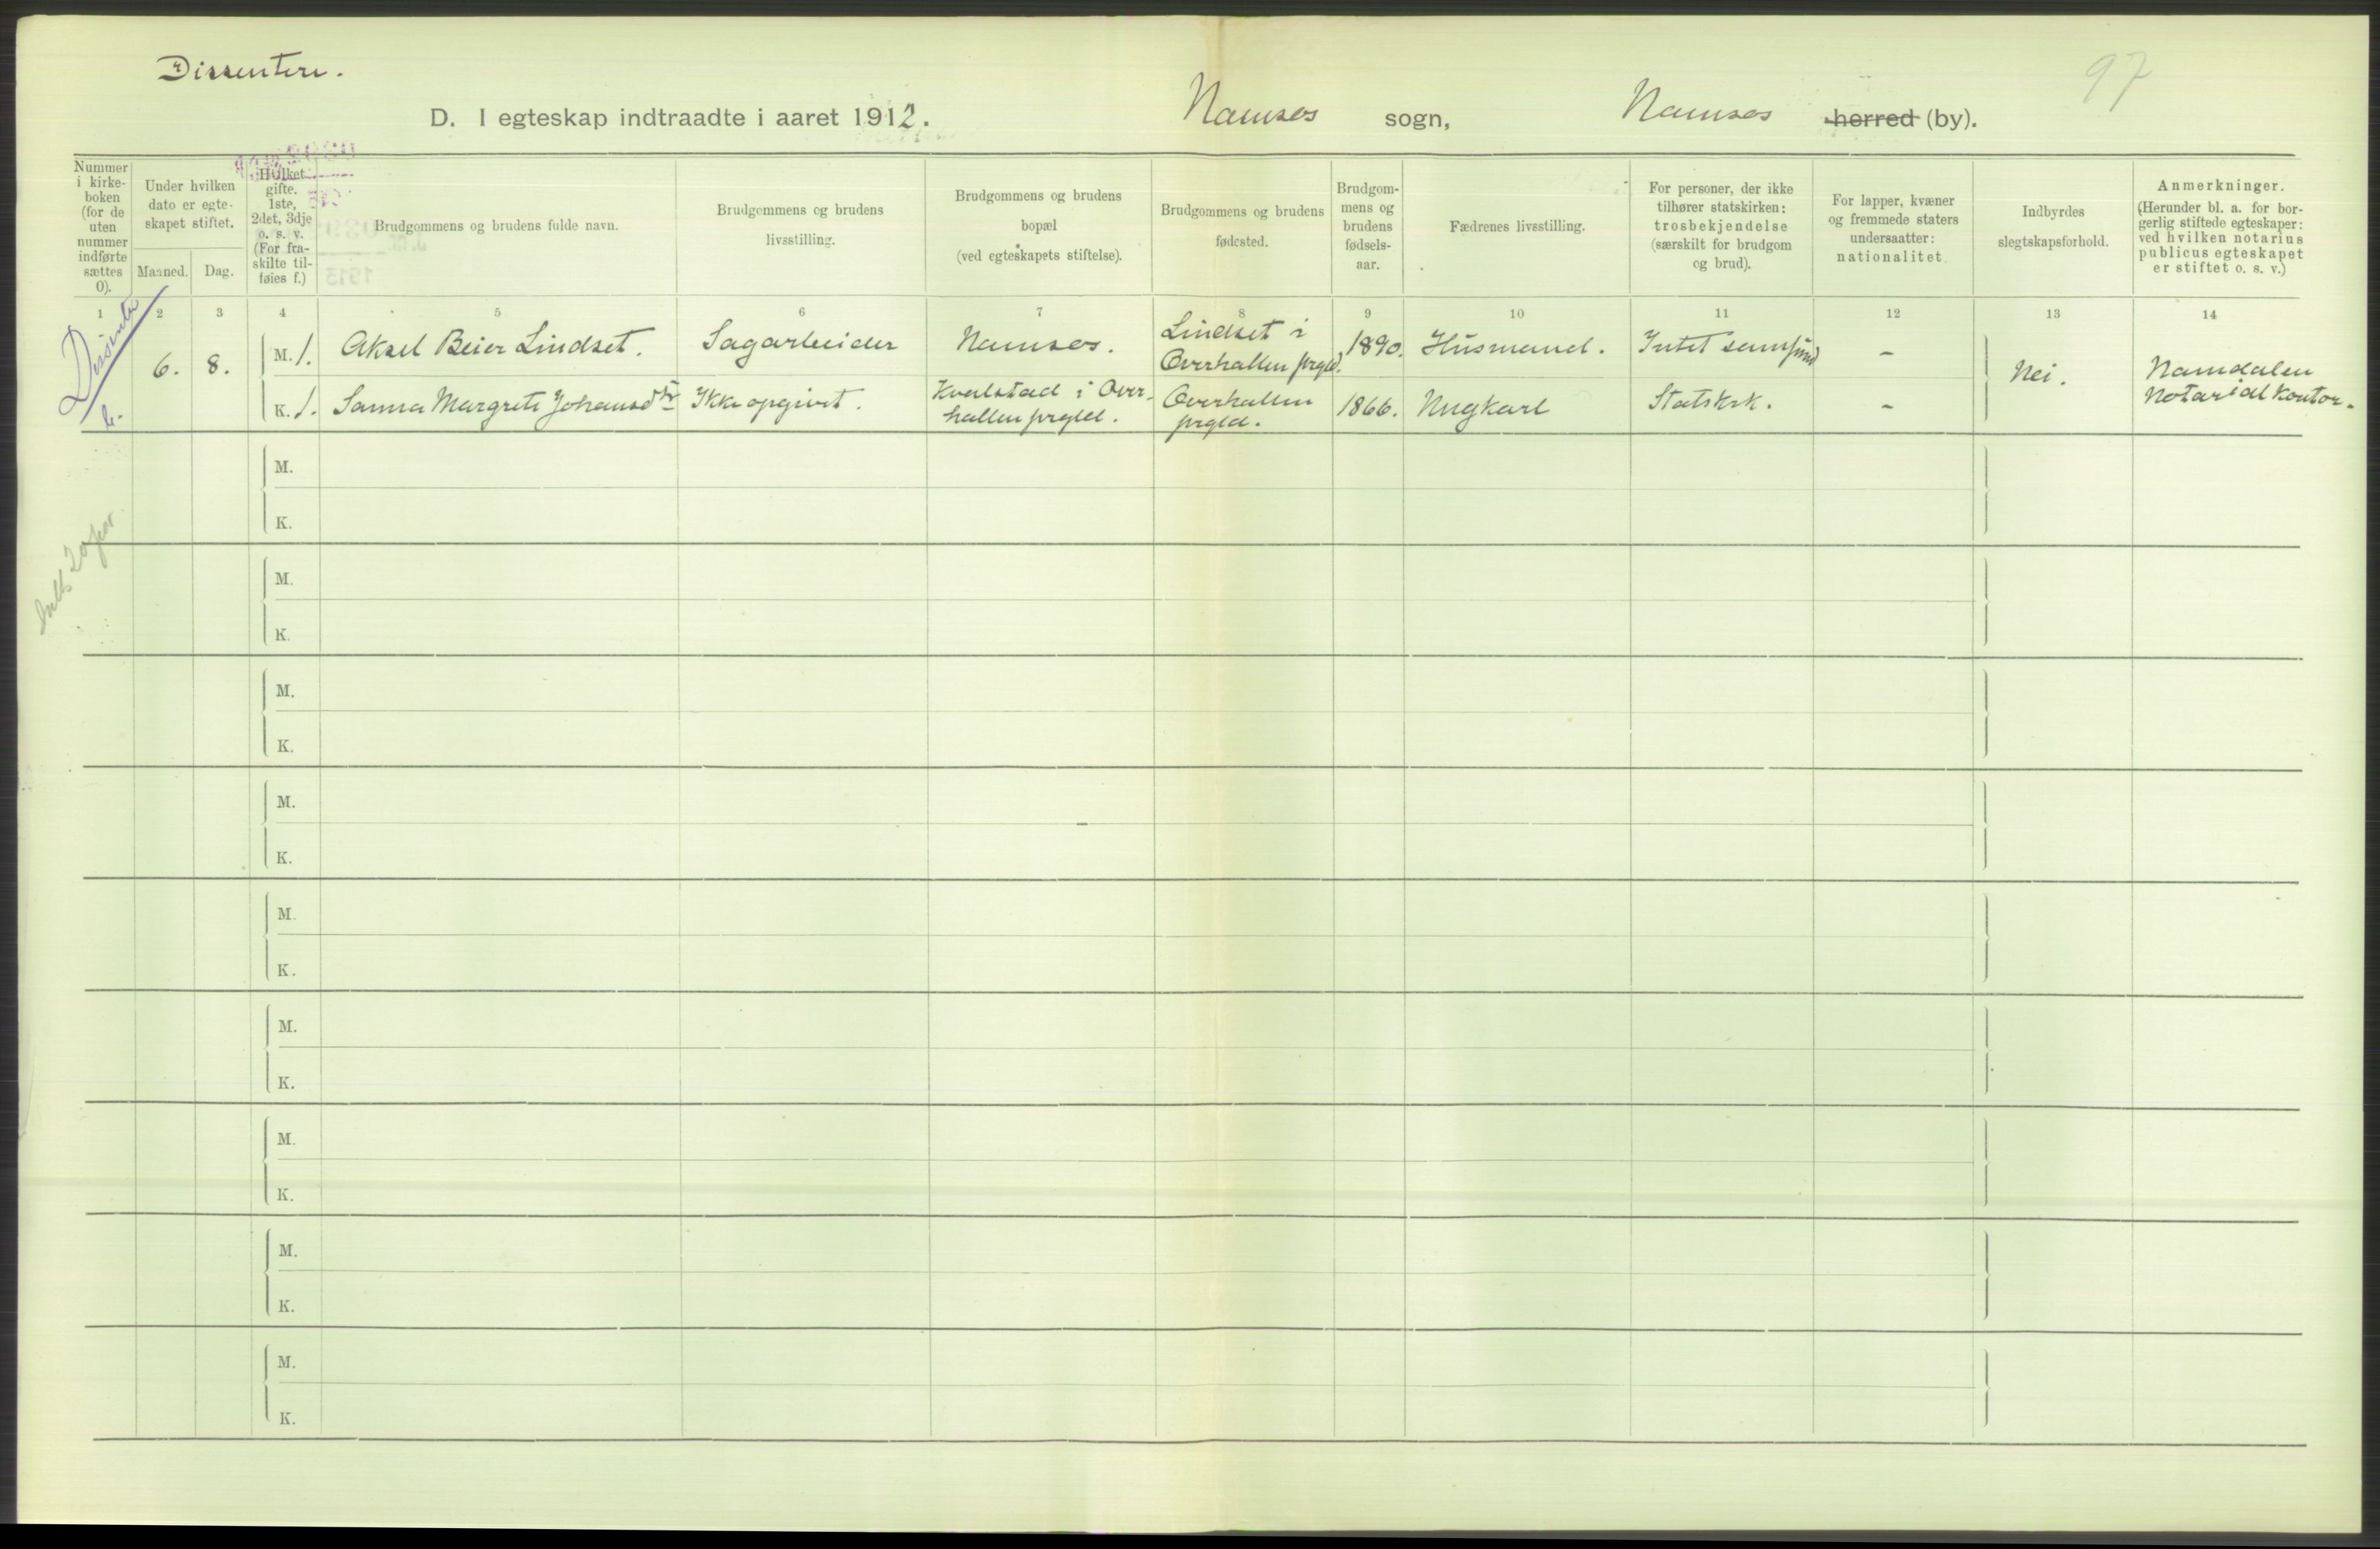 Dissentere.
97
D. I egteskap indtraadte i aaret 1912.
Namsos sogn,
Namsos herred (by).
Nummer i kirke-boken (for de uten nummer indførte sættes 0).
Under hvilken dato er egte-skapet stiftet.
Maaned.
Dag.
Hvilket gifte. 1ste, 2det, 3dje o. s. v. (For fra-skilte til-føies f.)
Brudgommens og brudens fulde navn.
Brudgommens og brudens livsstilling.
Brudgommens og brudens bopæl (ved egteskapets stiftelse).
Brudgommens og brudens fødested.
Brudgom-mens og brudens fødsels-aar.
Fædrenes livsstilling.
For personer, der ikke tilhører statskirken: trosbekjendelse (særskilt for brudgom og brud).
For lapper, kvæner og fremmede staters undersaatter: nationalitet.
Indbyrdes slegtskapsforhold.
Anmerkninger. (Herunder bl. a. for bor-gerlig stiftede egteskaper: ved hvilken notarius publicus egteskapet er stiftet o. s. v.)
1 2 3 4 5 6 7 8 9 10 11 12 13 14
6. 8.
M. 1. Aksel Beier Lindset. Sagarbeider Namsos. Lindset i Overhallen prgld. 1890. Husmand. Intet samfund -
K. 1. Sanna Margrete Johansdtr Ikke opgivet. Kvalstad i Over-hallen prgld. Overhallen prgld. 1866. Ungkarl Statskrk. -
Nei.
Namdalen Notarialkontor.
M.
K.
M.
K.
M.
K.
M.
K.
M.
K.
M.
K.
M.
K.
M.
K.
M.
K.